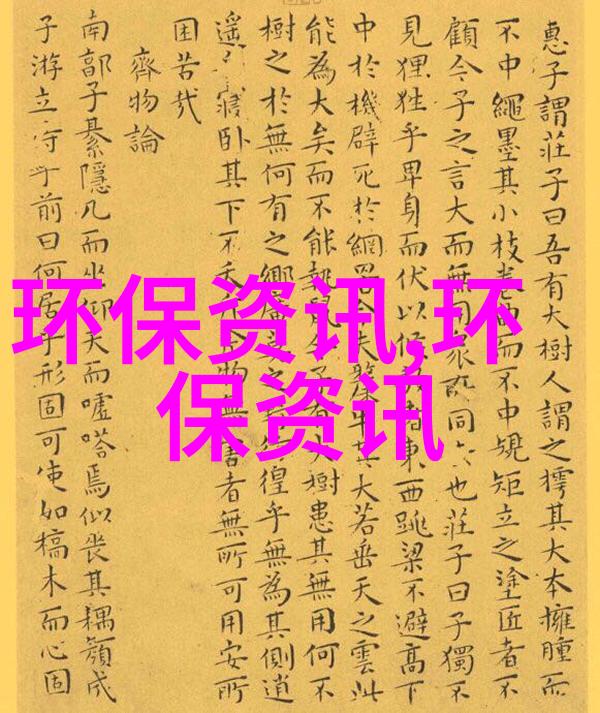 惠子謂莊子曰吾有大樹人謂之樗其大本擁腫而
不中繩墨其小枝卷曲而不中規矩立之塗匠者不
顧今子之言大而無用眾所同去也莊子曰子獨不
見狸狌乎卑身而伏以候敖者東西跳梁不避高下
中於機辟死於網罟今夫斄牛其大若垂天之雲此
能為大矣而不能執鼠今子有大樹患其無用何不
樹之於無何有之鄉廣莫之野彷徨乎無為其側逍
遙寢臥其下不夭斤斧物無害者無所可用安所
困苦哉
齊物論
南郭子綦隱几而坐仰天而噓嗒焉似喪其耦顏成
子游立侍乎前曰何居乎形固可使如槁木而心固
环保资讯,环
保资讯